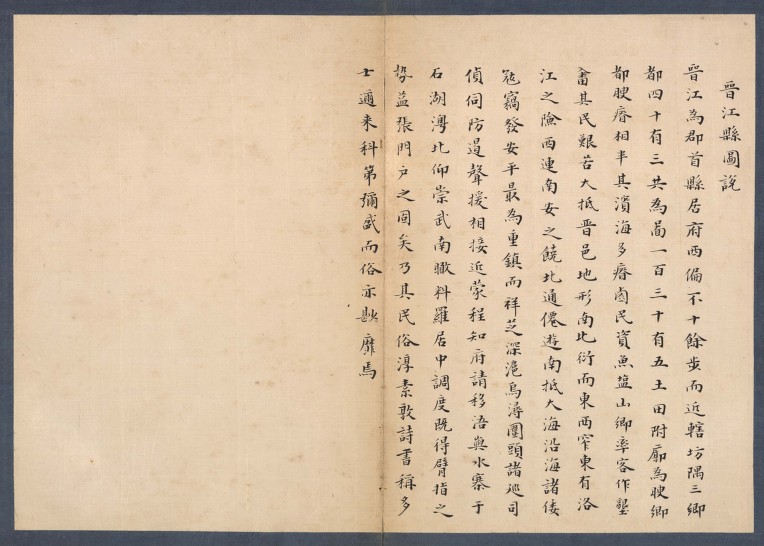 晉江縣圖說
晉江為郡首縣居府西偏不十餘步而近轄坊隅三鄉
都四十有三共為啚一百三十有五土田附廓為腴鄉
都腴瘠相半其濱海多瘠鹵民資魚塩山鄉率客作墾
畬其民艱苦大抵晉邑地形南北衍而東西窄東有洛
江之險西連南安之饒北通僊遊南抵大海沿海諸倭
寇竊發安平最為重鎮而祥芝深滬烏潯圍頭諸巡司
偵伺防遏聲援相接近蒙程知府請移浯嶼水寨于
石湖澚北仰崇武南瞰料羅居中調度既得臂指之
勢益張門户之固矣乃其民俗淳素敦詩書稱多
士邇来科第彌盛而俗亦尠靡焉